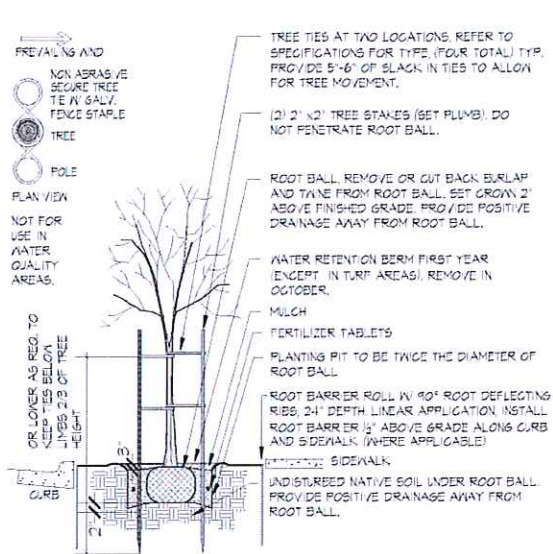 PREVAILING WIND
NON ABRASIVE
SECURE TREE
TIE W/ GALV.
FENCE STAPLE
TREE
POLE
PLAN VIEW
NOT FOR
USE IN
WATER
QUALITY
AREAS.
OR LOWER AS REQ. TO
KEEP TIES BELOW
LIMBS 2/3 OF TREE
HEIGHT
CURB
3"
TREE TIES AT TWO LOCATIONS, REFER TO
SPECIFICATIONS FOR TYPE, (FOUR TOTAL) TYP.
PROVIDE 5"-6" OF SLACK IN TIES TO ALLOW
FOR TREE MOVEMENT.
(2) 2" x2" TREE STAKES (SET PLUMB), DO
NOT PENETRATE ROOT BALL.
ROOT BALL, REMOVE OR CUT BACK BURLAP
AND TWINE FROM ROOT BALL. SET CROWN 2"
ABOVE FINISHED GRADE. PROVIDE POSITIVE
DRAINAGE AWAY FROM ROOT BALL.
WATER RETENTION BERM FIRST YEAR
(EXCEPT IN TURF AREAS), REMOVE IN
OCTOBER.
MULCH
FERTILIZER TABLETS
PLANTING PIT TO BE TWICE THE DIAMETER OF
ROOT BALL
ROOT BARRIER ROLL W/ 90° ROOT DEFLECTING
RIBS, 24" DEPTH. LINEAR APPLICATION, INSTALL
ROOT BARRIER ½" ABOVE GRADE ALONG CURB
AND SIDEWALK (WHERE APPLICABLE)
SIDEWALK
UNDISTURBED NATIVE SOIL UNDER ROOT BALL.
PROVIDE POSITIVE DRAINAGE AWAY FROM
ROOT BALL.